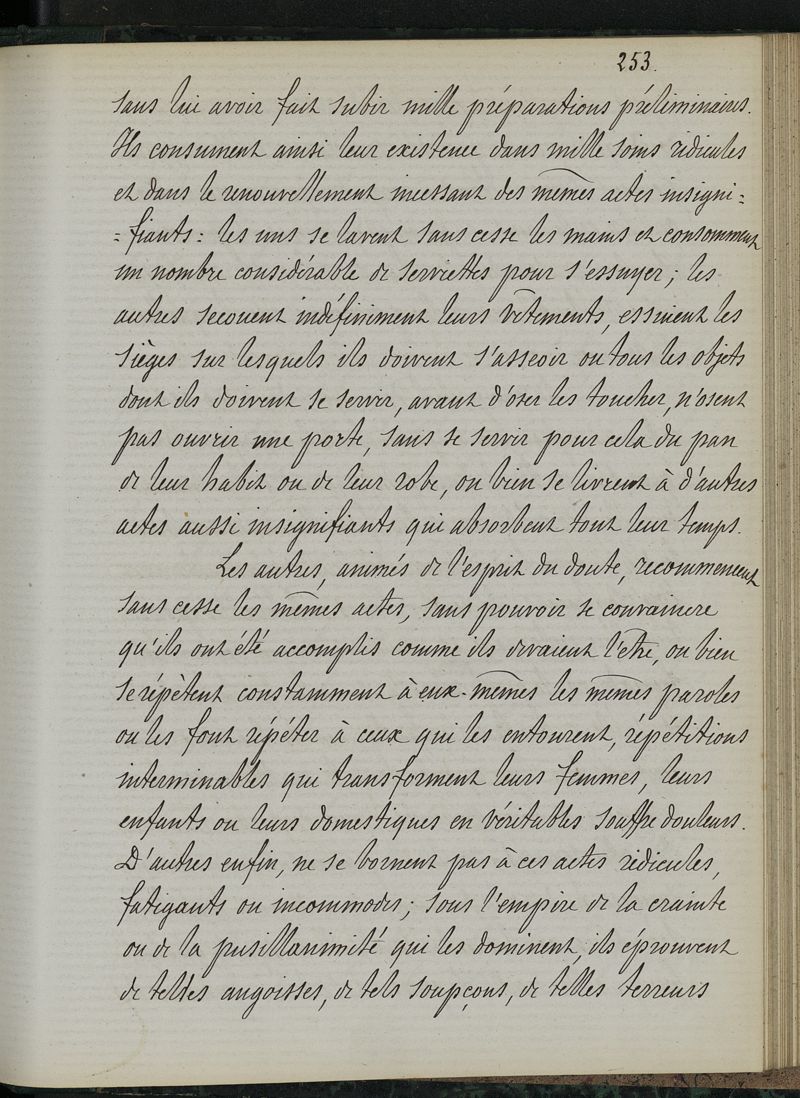 253.
sans lui avoir fait subir mille préparations préliminaires.
Ils consument ainsi leur existence dans mille soins ridicules
et dans le renouvellement incessant des mêmes actes insigni=
=fiants: les uns se lavent sans cesse les mains et consomment
un nombre considérable de serviettes pour s'essuyer; les
autres secouent indéfiniment leurs vêtements, essuient les
sièges sur lesquels ils doivent s'asseoir ou tous les objets
dont ils doivent se servir, avant d'oser les toucher, n'osent
pas ouvrir une porte, sans se servir pour cela du pan
de leur habit ou de leur robe, ou bien se livrent à d'autres
actes aussi insignifiants qui absorbent tout leur temps.
Les autres, animés de l'esprit du doute, recommencent
sans cesse les mêmes actes, sans pouvoir se convaincre
qu'ils ont été accomplis comme ils devaient l'être, ou bien
se répètent constamment à eux-mêmes les mêmes paroles
ou les font répéter à ceux qui les entourent, répétitions
interminables qui transforment leurs femmes, leurs
enfants ou leurs domestiques en véritables souffre douleurs.
D'autres enfin, ne se bornent pas à ces actes ridicules,
fatigants ou incommodes; sous l'empire de la crainte
ou de la pusillanimité qui les dominent, ils éprouvent
de telles angoisses, de tels soupçons, de telles terreurs